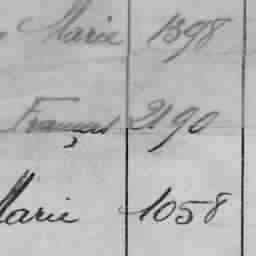 Marie 1398
François 2190
Marie 1058